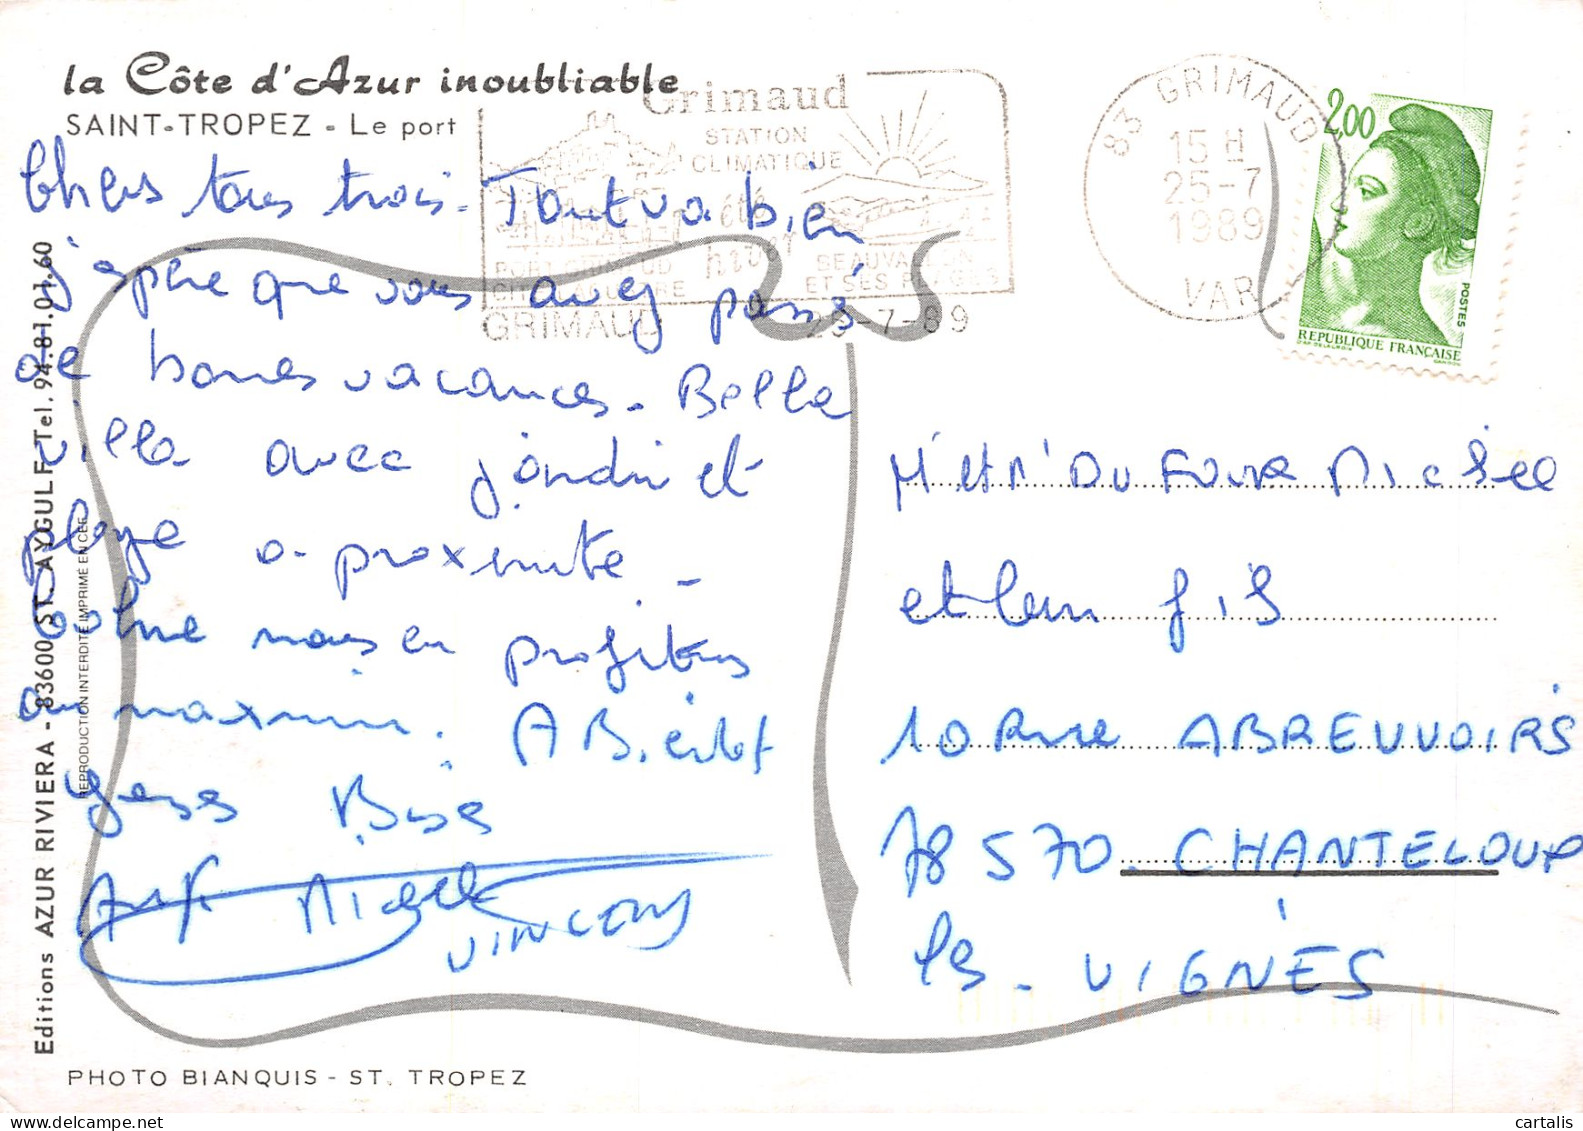 la Côte d'Azur inoubliable
SAINT-TROPEZ - Le port
Chers tous trois. Tout va bien
j'espère que vous avez passé
de bonnes vacances. Belle
villa avec jardin et
plage a proximité -
nous en profitons
au maximum. A Bientot
Gros Bisis
VINCENT
Grimaud
STATION
CLIMATIQUE
été
hiver
PORT GRIMAUD
CITE LACUSTRE
BEAUVALLON
ET SES PLAGES
GRIMAUD 25-7-89
83 GRIMAUD
15 H
25-7
1989
VAR
2,00
POSTES
REPUBLIQUE FRANÇAISE
M' et M' DU FOUR Michel
et leur fils
10 Rue ABREUVOIRS
78570. CHANTELOUP
les - VIGNES
Editions AZUR RIVIERA - 83600 ST. AYGULF Tel. 94.81.01.60
REPRODUCTION INTERDITE IMPRIMÉ EN CEE
PHOTO BIANQUIS - ST. TROPEZ
cartalis